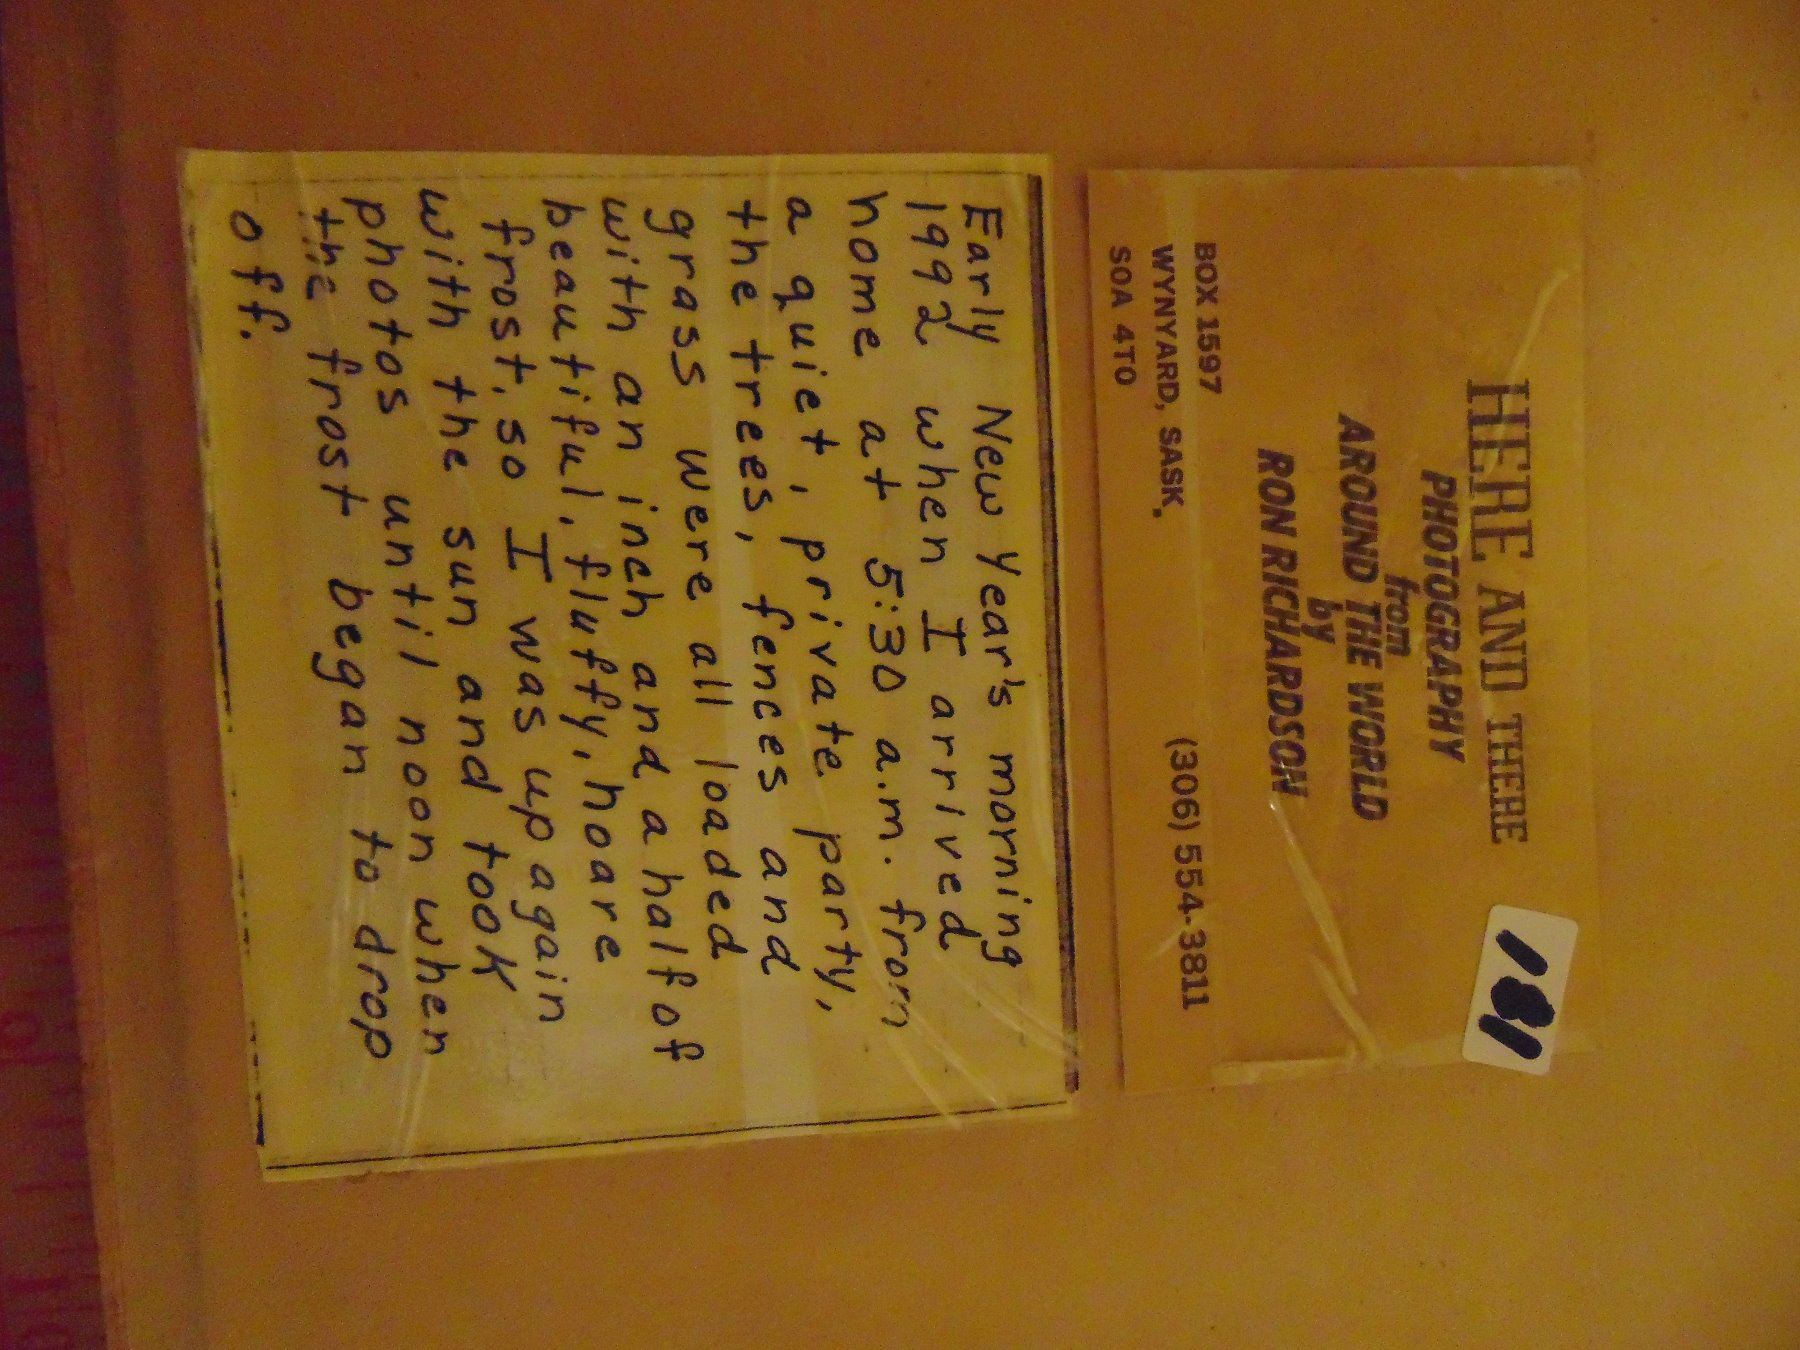 HERE AND THERE
PHOTOGRAPHY
from
AROUND THE WORLD
by
RON RICHARDSON
BOX 1597
WYNYARD, SASK.
SOA 4TO
(306) 554-3811
181
Early New Year's morning
1992 when I arrived
home at 5:30 a.m. from
a quiet, private party,
the trees, fences and
grass were all loaded
with an inch and a half of
beautiful, fluffy, hoare
frost, so I was up again
with the sun and took
photos until noon when
the frost began to drop
off.